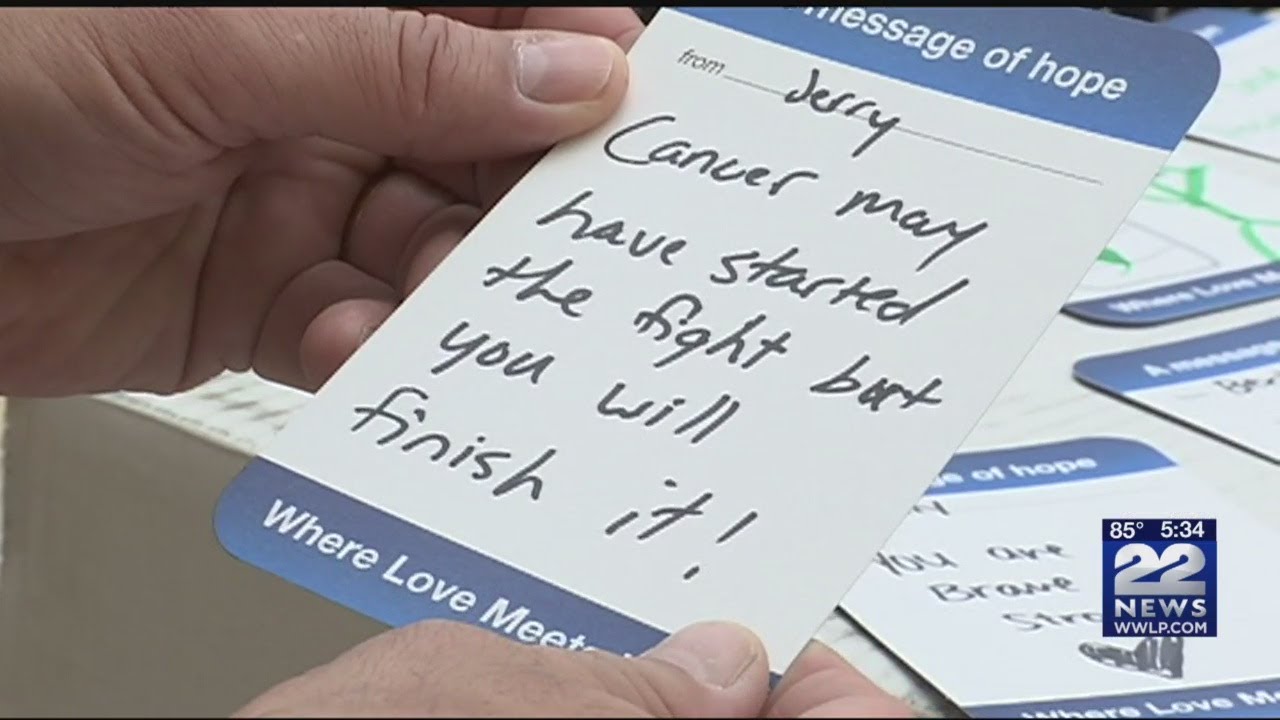 message of hope
from Jerry
Cancer may
have started
the fight but
you will
finish it!
Where Love Meets
Where Love M
A message
of hope
You are
Brave
Where Love Me
85° 5:34
22
NEWS
WWLP.COM